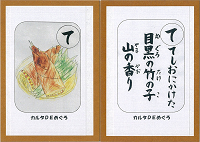 て
カルタDEめぐろ
て
てしおにかけた
目黒の竹の子
めぐろ たけ こ
山の香り
やま かお
カルタDEめぐろ